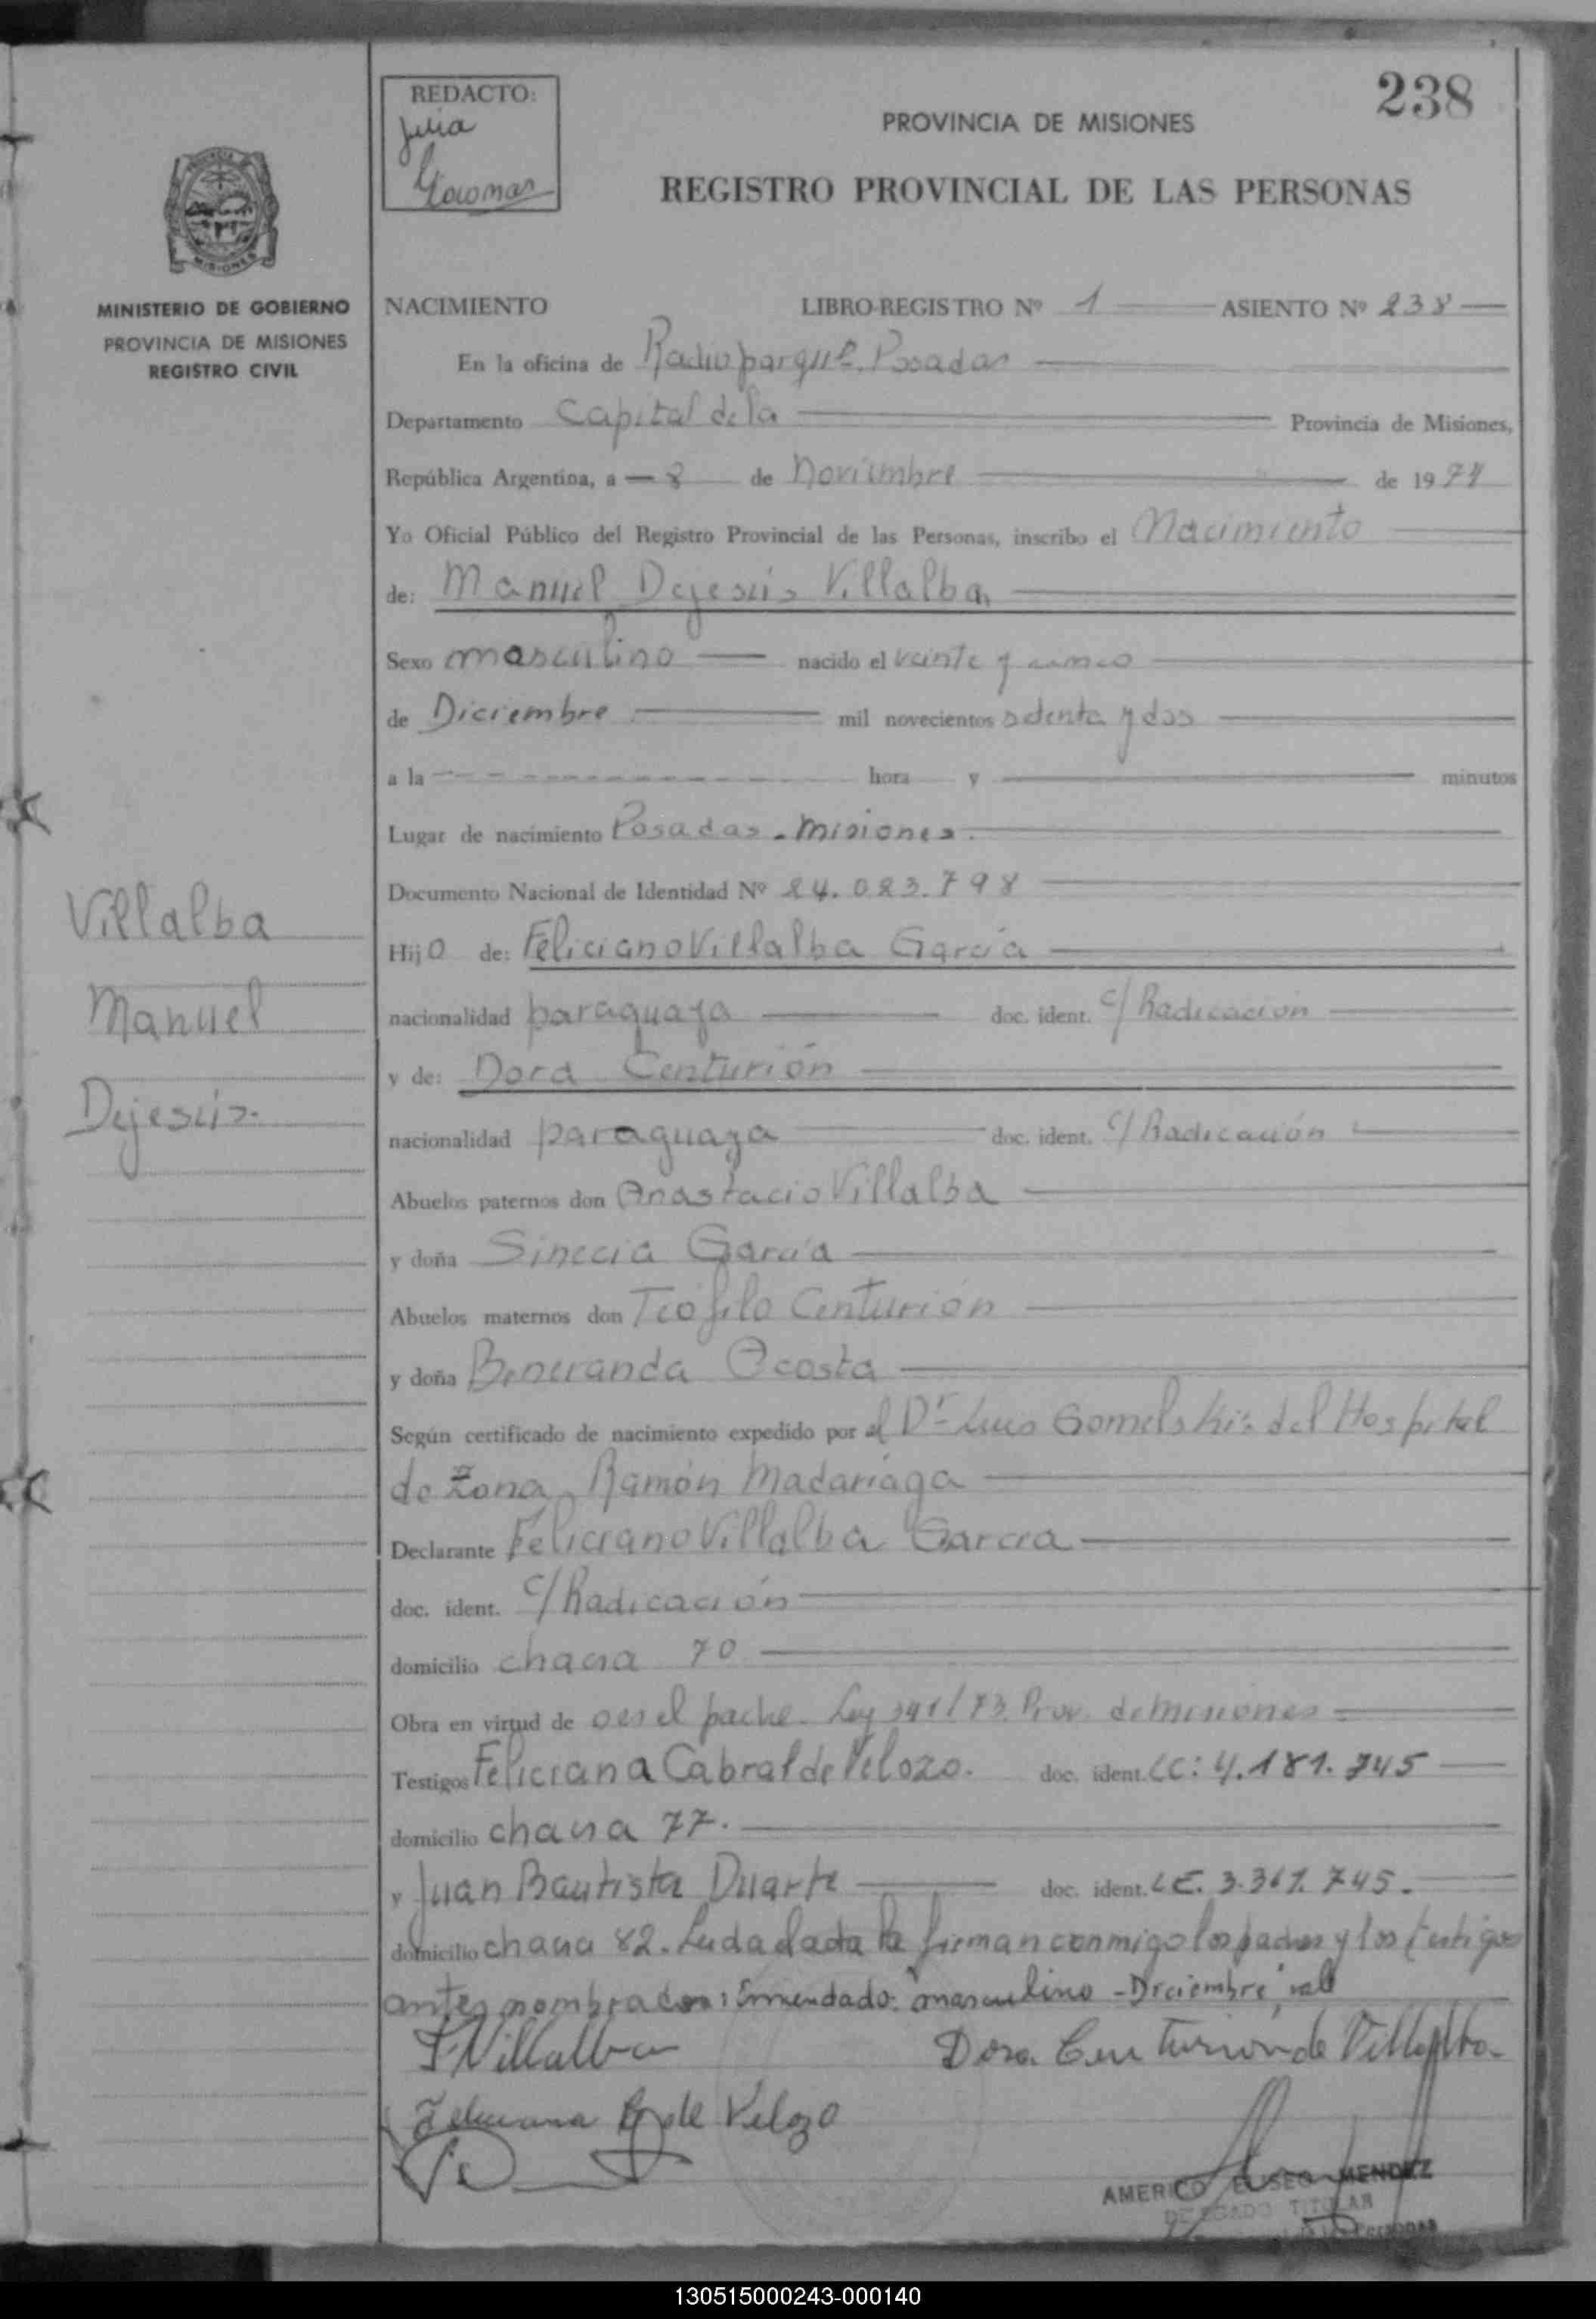 238
REDACTO:
Julia
PROVINCIA DE MISIONES
REGISTRO PROVINCIAL DE LAS PERSONAS
MISIONES
MINISTERIO DE GOBIERNO
PROVINCIA DE MISIONES
REGISTRO CIVIL
NACIMIENTO LIBRO-REGISTRO Nº 1 ASIENTO Nº 238
En la oficina de Radioparque. Posadas
Departamento Capital de la Provincia de Misiones,
República Argentina, a 8 de noviembre de 1974
Yo Oficial Público del Registro Provincial de las Personas, inscribo el Nacimiento
de: Manuel Dejesús Villalba
Sexo masculino nacido el veinte y cinco
de Diciembre mil novecientos setenta y dos
a la hora y minutos
Lugar de nacimiento Posadas - Misiones.
Documento Nacional de Identidad Nº 24.023.798
Villalba
Manuel
Dejesús.
Hijo de: Feliciano Villalba García
nacionalidad paraguaya doc. ident. c/ Radicación
y de: Dora Centurión
nacionalidad paraguaya doc. ident. c/ Radicación
Abuelos paternos don Anastacio Villalba
y doña Sinecia García
Abuelos maternos don Teófilo Centurión
y doña Beneranda Acosta
Según certificado de nacimiento expedido por el Dr Luis Gomelski: del Hospital
de Zona Ramón Madariaga
Declarante Feliciano Villalba García
doc. ident. c/ Radicación
domicilio chacra 70
Obra en virtud de ser el padre. Ley 391/73. Prov. de Misiones
Testigos Feliciana Cabral de Velozo. doc. ident. LC: 4.181.745
domicilio chacra 77.
y Juan Bautista Duarte doc. ident. LE. 3.367.745.
domicilio chacra 82. Leida el acta la firman conmigo los padres y los testigos
antes nombrados: Enmendado: "masculino - Diciembre" vale
F Villalba Dora Centurión de Villalba
Feliciana C de Velozo
AMERICO ELISEO MENDEZ
DELEGADO TITULAR
de las Personas
130515000243-000140